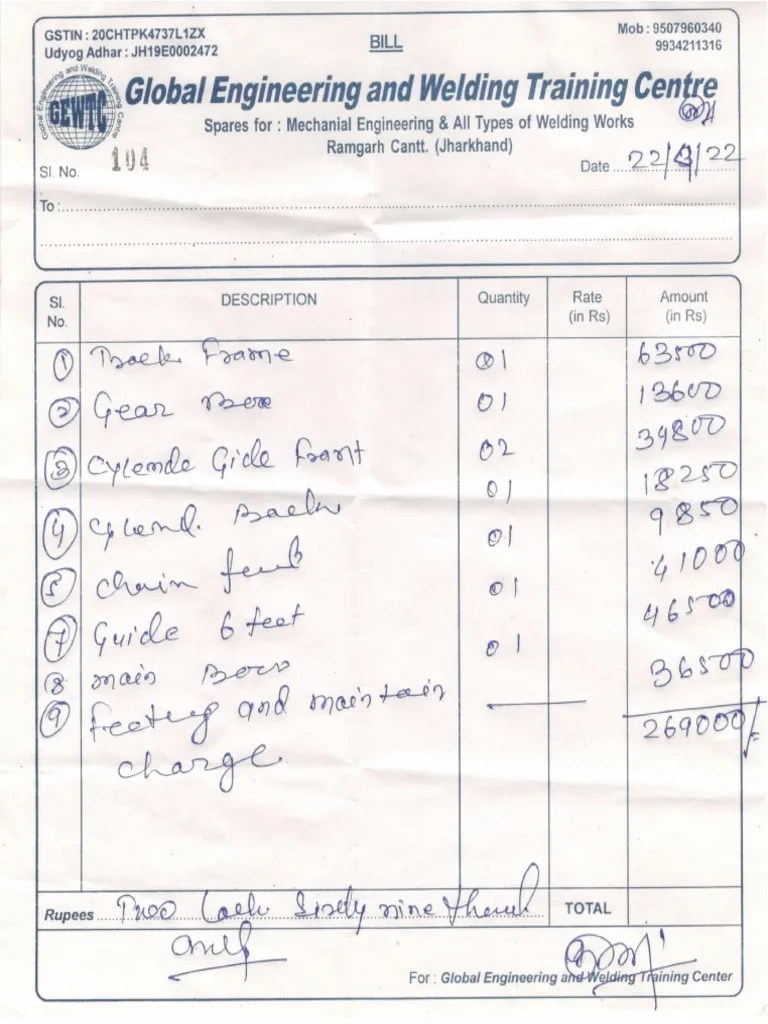 GSTIN : 20CHTPK4737L1ZX
Udyog Adhar : JH19E0002472
BILL
Mob : 9507960340
9934211316
Global Engineering and Welding Training Centre
GEWTC
Global Engineering and Welding Training Centre
Spares for : Mechanial Engineering & All Types of Welding Works
Ramgarh Cantt. (Jharkhand)
Sl. No. 104
Date 22/9/22
To :
Sl. No. DESCRIPTION Quantity Rate (in Rs) Amount (in Rs)
1 Back Frame 01 63500
2 Gear Box 01 13600
3 Cylende Gide Frant 02 39800
4 Cylend. Back 01 18250
5 Chain 01 9850
7 Guide 6 feet 01 41000
8 main 01 46500
9 Feeting and maintain 36500
charge
269000/-
Rupees Two Lack Sixty nine
TOTAL
For : Global Engineering and Welding Training Center